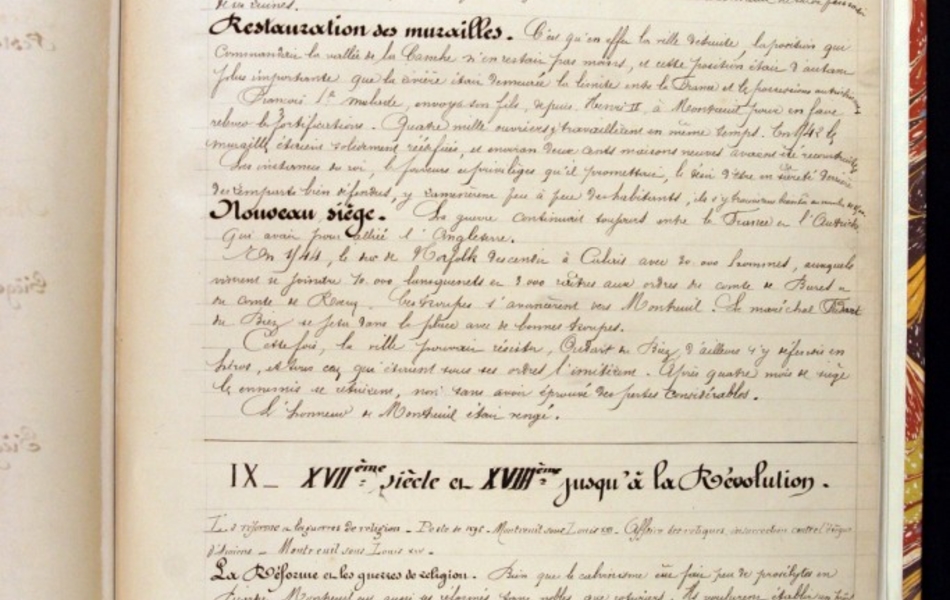 de ses ruines.
Restauration des murailles. C'est qu'en effet la ville détruite, la position qui
commandait la vallée de la Canche n'en restait pas moins, et cette position était d'autant
plus importante que la rivière était demeurée la limite entre la France et les possessions autrichiennes.
François 1er malade, envoya son fils, depuis Henri II, à Montreuil pour en faire
relever les fortifications. Quatre mille ouvriers y travaillèrent en même temps. En 1542 les
murailles étaient solidement réédifiées, et environ deux cents maisons neuves avaient été reconstruites.
Les instances du roi, les faveurs et privilèges qu'il promettait, le désir d'être en sûreté derrière
des remparts bien défendus, y ramenèrent peu à peu des habitants, ils s'y trouvèrent bientôt au nombre de
Nouveau siège. La guerre continuait toujours entre la France et l'Autriche,
qui avait pour allié l'Angleterre.
En 1544, le duc de Norfolk descendit à Calais avec 30.000 hommes, auxquels
vinrent se joindre 10.000 lansquenets et 3.000 reîtres aux ordres du comte de Bures et
du comte de Rœux. Ces troupes s'avancèrent vers Montreuil. Le maréchal Oudart
du Biez se jeta dans la place avec de bonnes troupes.
Cette fois, la ville pouvait résister, Oudart du Biez d'ailleurs s'y défendit en
héros, et tous ceux qui étaient sous ses ordres l'imitèrent. Après quatre mois de siège
les ennemis se retirèrent, non sans avoir éprouvé des pertes considérables.
L'honneur de Montreuil était vengé.
IX_ XVIIème siècle et XVIIIème jusqu'à la Révolution.
La réforme et les guerres de religion. Peste de 1596. Montreuil sous Louis XIII. Affaire des reliques, insurrection contre l'évêque
d'Amiens. Montreuil sous Louis XIV.
La Réforme et les guerres de religion. Bien que le calvinisme eût fait peu de prosélytes en
Montreuil eut aussi ses réformés tant nobles que roturiers. Ils voulurent établir